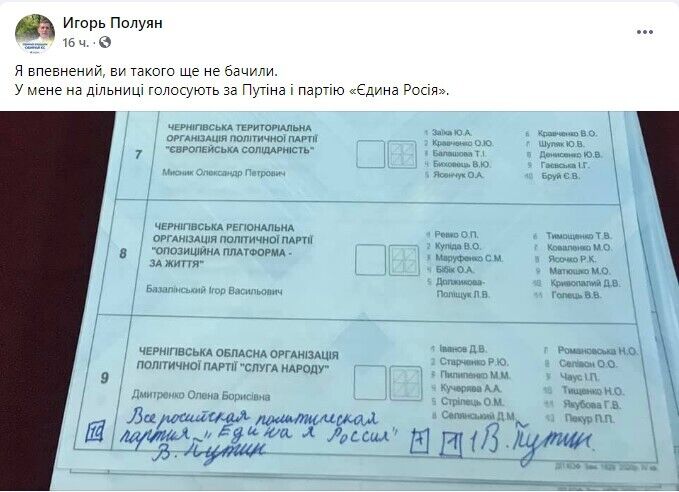 Игорь Полуян
16 ч.
Я впевнений, ви такого ще не бачили.
У мене на дільниці голосують за Путіна і партію «Єдина Росія».
7
ЧЕРНІГІВСЬКА ТЕРИТОРІАЛЬНА
ОРГАНІЗАЦІЯ ПОЛІТИЧНОЇ ПАРТІЇ
"ЄВРОПЕЙСЬКА СОЛІДАРНІСТЬ"
Мисник Олександр Петрович
1 Заїка Ю.А.
2 Кравченко О.Ю.
3 Балашова Т.І.
4 Биховець В.Ю.
5 Ясенчук О.А.
6 Кравченко В.О.
7 Шуляк Ю.В.
8 Денисенко Ю.В.
9 Гаєвська І.Г.
10 Бруй Є.В.
8
ЧЕРНІГІВСЬКА РЕГІОНАЛЬНА
ОРГАНІЗАЦІЯ ПОЛІТИЧНОЇ ПАРТІЇ
"ОПОЗИЦІЙНА ПЛАТФОРМА -
ЗА ЖИТТЯ"
Базалінський Ігор Васильович
1 Ревко О.П.
2 Куліда В.О.
3 Маруфенко С.М.
4 Бібік О.А.
5 Должикова-
Поліщук Л.В.
6 Тимощенко Т.В.
7 Коваленко М.О.
8 Ясочко Р.К.
9 Матюшко М.О.
10 Криволапий Д.В.
11 Голець В.В.
9
ЧЕРНІГІВСЬКА ОБЛАСНА ОРГАНІЗАЦІЯ
ПОЛІТИЧНОЇ ПАРТІЇ "СЛУГА НАРОДУ"
Дмитренко Олена Борисівна
1 Іванов Д.В.
2 Старченко Р.Ю.
3 Пилипенко М.М.
4 Кучерява А.А.
5 Стрілець О.М.
6 Селянський Д.М.
7 Романовська Н.О.
8 Селівон О.О.
9 Чаус І.П.
10 Тищенко Н.О.
11 Якубова Г.В.
12 Пекур П.П.
10 Всеросийская политическая
партия „Единая Россия"
В. Путин
1 В. Путин.